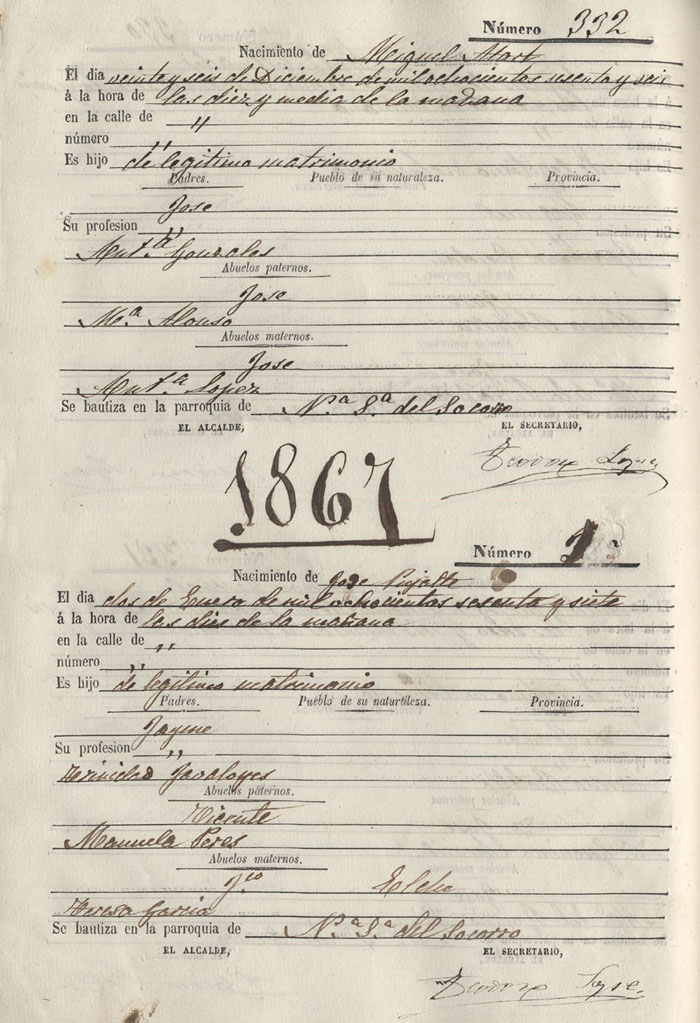 Número 332
Nacimiento de Miguel Mart
El dia veinte y seis de Diciembre de mil ochocientos sesenta y seis
á la hora de las diez y media de la mañana
en la calle de "
número "
Es hijo de legitimo matrimonio
Padres. Pueblo de su naturaleza. Provincia.
Jose
Su profesion "
Ant.ª Gonzales
Abuelos paternos.
Jose
Mª Alonso
Abuelos maternos.
Jose
Ant.ª Lopez
Se bautiza en la parroquia de N.ª S.ª del Socorro
EL ALCALDE, EL SECRETARIO,
1867
Número 1º
Nacimiento de Jose Pujalte
El dia dos de Enero de mil ochocientos sesenta y siete
á la hora de las dies de la mañana
en la calle de "
número "
Es hijo de legitimo matrimonio
Padres. Pueblo de su naturaleza. Provincia.
Jayme
Su profesion "
Trinidad Javaloyes
Abuelos paternos.
Vicente
Manuela Peres
Abuelos maternos.
Jco Elche
Teresa Garcia
Se bautiza en la parroquia de N.ª S.ª del Socorro
EL ALCALDE, EL SECRETARIO,